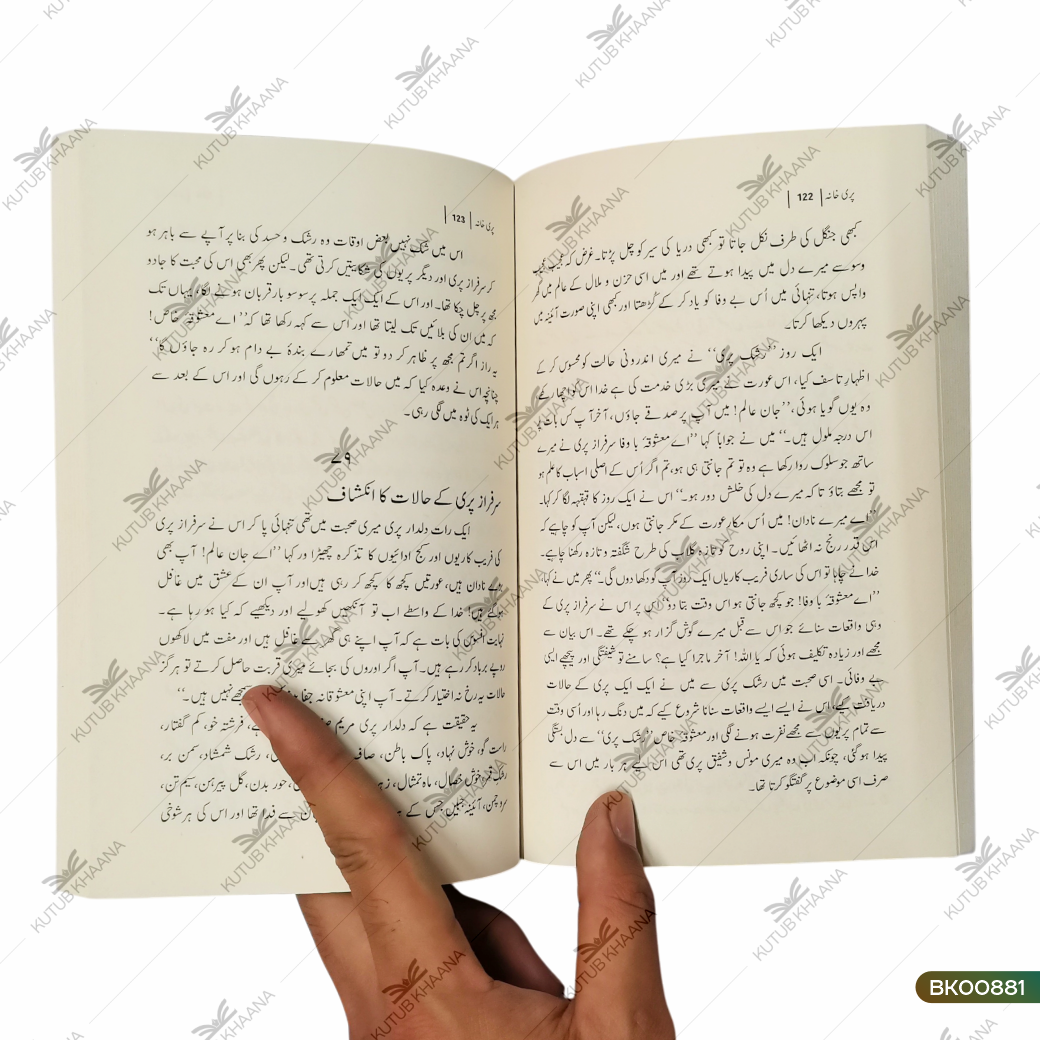 پری خانہ | 122 |
کبھی جنگل کی طرف نکل جاتا تو کبھی دریا کی سیر کو چل پڑتا۔ غرض کہ عجیب عجیب
وسوسے میرے دل میں پیدا ہوتے تھے اور میں اسی حزن و ملال کے عالم میں گھر
واپس ہوتا، تنہائی میں اُس بے وفا کو یاد کر کے کُڑھتا اور کبھی اپنی صورت آئینہ میں
پہروں دیکھا کرتا۔
ایک روز ’’رشک پری‘‘ نے میری اندرونی حالت کو محسوس کر کے
اظہارِ تاسف کیا، اس عورت نے میری بڑی خدمت کی ہے خدا اس کو اچھا رکھے
وہ یوں گویا ہوئی، ’’جان عالم! میں آپ پر صدقے جاؤں، آخر آپ کس بات پر
اس درجہ ملول ہیں۔‘‘ میں نے جواباً کہا ’’اے معشوقۂ با وفا سرفراز پری نے میرے
ساتھ جو سلوک روا رکھا ہے وہ تو تم جانتی ہی ہو، تم اگر اُس کے اصلی اسباب کا علم ہو
تو مجھے بتاؤ تاکہ میرے دل کی خلش دور ہو۔‘‘ اس نے ایک روز کا قہقہہ لگا کر کہا۔
’’اے میرے نادان! میں اُس مکار عورت کے مکر جانتی ہوں، لیکن آپ کو چاہیے کہ
اس قدر رنج نہ اٹھائیں۔ اپنی روح کو تازہ گلاب کی طرح شگفتہ و تازہ رکھنا چاہیے۔
خدا نے چاہا تو اس کی ساری فریب کاریاں ایک روز آپ کو دکھا دوں گی۔‘‘ پھر میں نے کہا
’’اے معشوقۂ با وفا! جو کچھ جانتی ہو اس وقت بتا دو‘‘ اس پر اس نے سرفراز پری کے
وہی واقعات سنائے جو اس سے قبل میرے گوش گزار ہو چکے تھے۔ اس بیان سے
مجھے اور زیادہ تکلیف ہوئی کہ یا اللہ! آخر ماجرا کیا ہے؟ سامنے تو شیفتگی اور پیچھے ایسی
بے وفائی۔ اسی صحبت میں رشک پری سے میں نے ایک ایک پری کے حالات
دریافت کیے، اس نے ایسے ایسے واقعات سنانا شروع کیے کہ میں دنگ رہا اور اُسی وقت
سے تمام پریوں سے مجھے نفرت ہونے لگی اور معشوقۂ خاص ’’رشک پری‘‘ سے دل بستگی
پیدا ہو گئی، چونکہ اب وہ میری مونس و شفیق پری تھی اس لیے ہر بار میں اس سے
صرف اسی موضوع پر گفتگو کرتا تھا۔
پری خانہ | 123 |
اس میں شک نہیں بعض اوقات وہ رشک و حسد کی بنا پر آپے سے باہر ہو
کر سرفراز پری اور دیگر پریوں کی شکایتیں کرتی تھی۔ لیکن پھر بھی اس کی محبت کا جادو
مجھ پر چل چکا تھا۔ اور اس کے ایک ایک جملہ پر سو سو بار قربان ہونے لگا، یہاں تک
کہ میں ان کی بلائیں تک لیتا تھا اور اس سے کہہ رکھا تھا کہ ’’اے معشوقۂ خاص!
یہ راز اگر تم مجھ پر ظاہر کر دو تو میں تمھارے بندۂ بے دام ہو کر رہ جاؤں گا‘‘
چنانچہ اس نے وعدہ کیا کہ میں حالات معلوم کر کے رہوں گی اور اس کے بعد سے
ہر ایک کی ٹوہ میں لگی رہی۔
۷۹
سرفراز پری کے حالات کا انکشاف
ایک رات دلدار پری میری صحبت میں تھی تنہائی پا کر اس نے سرفراز پری
کی فریب کاریوں اور کج ادائیوں کا تذکرہ چھیڑا اور کہا ’’اے جان عالم! آپ بھی
بڑے نادان ہیں، عورتیں کچھ کا کچھ کر رہی ہیں اور آپ ان کے عشق میں غافل
ہو گئے ہیں! خدا کے واسطے اب تو آنکھیں کھولیے اور دیکھیے کہ کیا ہو رہا ہے۔
نہایت افسوس کی بات ہے کہ آپ اپنے ہی گھر سے غافل ہیں اور مفت میں لاکھوں
روپے برباد کر رہے ہیں۔ آپ اگر اوروں کی بجائے میری قربت حاصل کرتے تو ہرگز
حالات یہ رخ نہ اختیار کرتے۔ آپ اپنی معشوقانہ جفا نہیں ہیں۔‘‘
یہ حقیقت ہے کہ دلدار پری مریم فرشتہ خو، کم گفتار،
راست گو، خوش نہاد، پاک باطن، صاف رشک شمشاد، سمن بر،
رشک قمر، خوش خصال، ماہ تمثال، حور بدن، گل پیرہن، سیم تن،
سرو چمن، آئینہ جبیں جس کے سے فدا تھا اور اس کی ہر شوخی
KUTUB KHAANA
BK00881